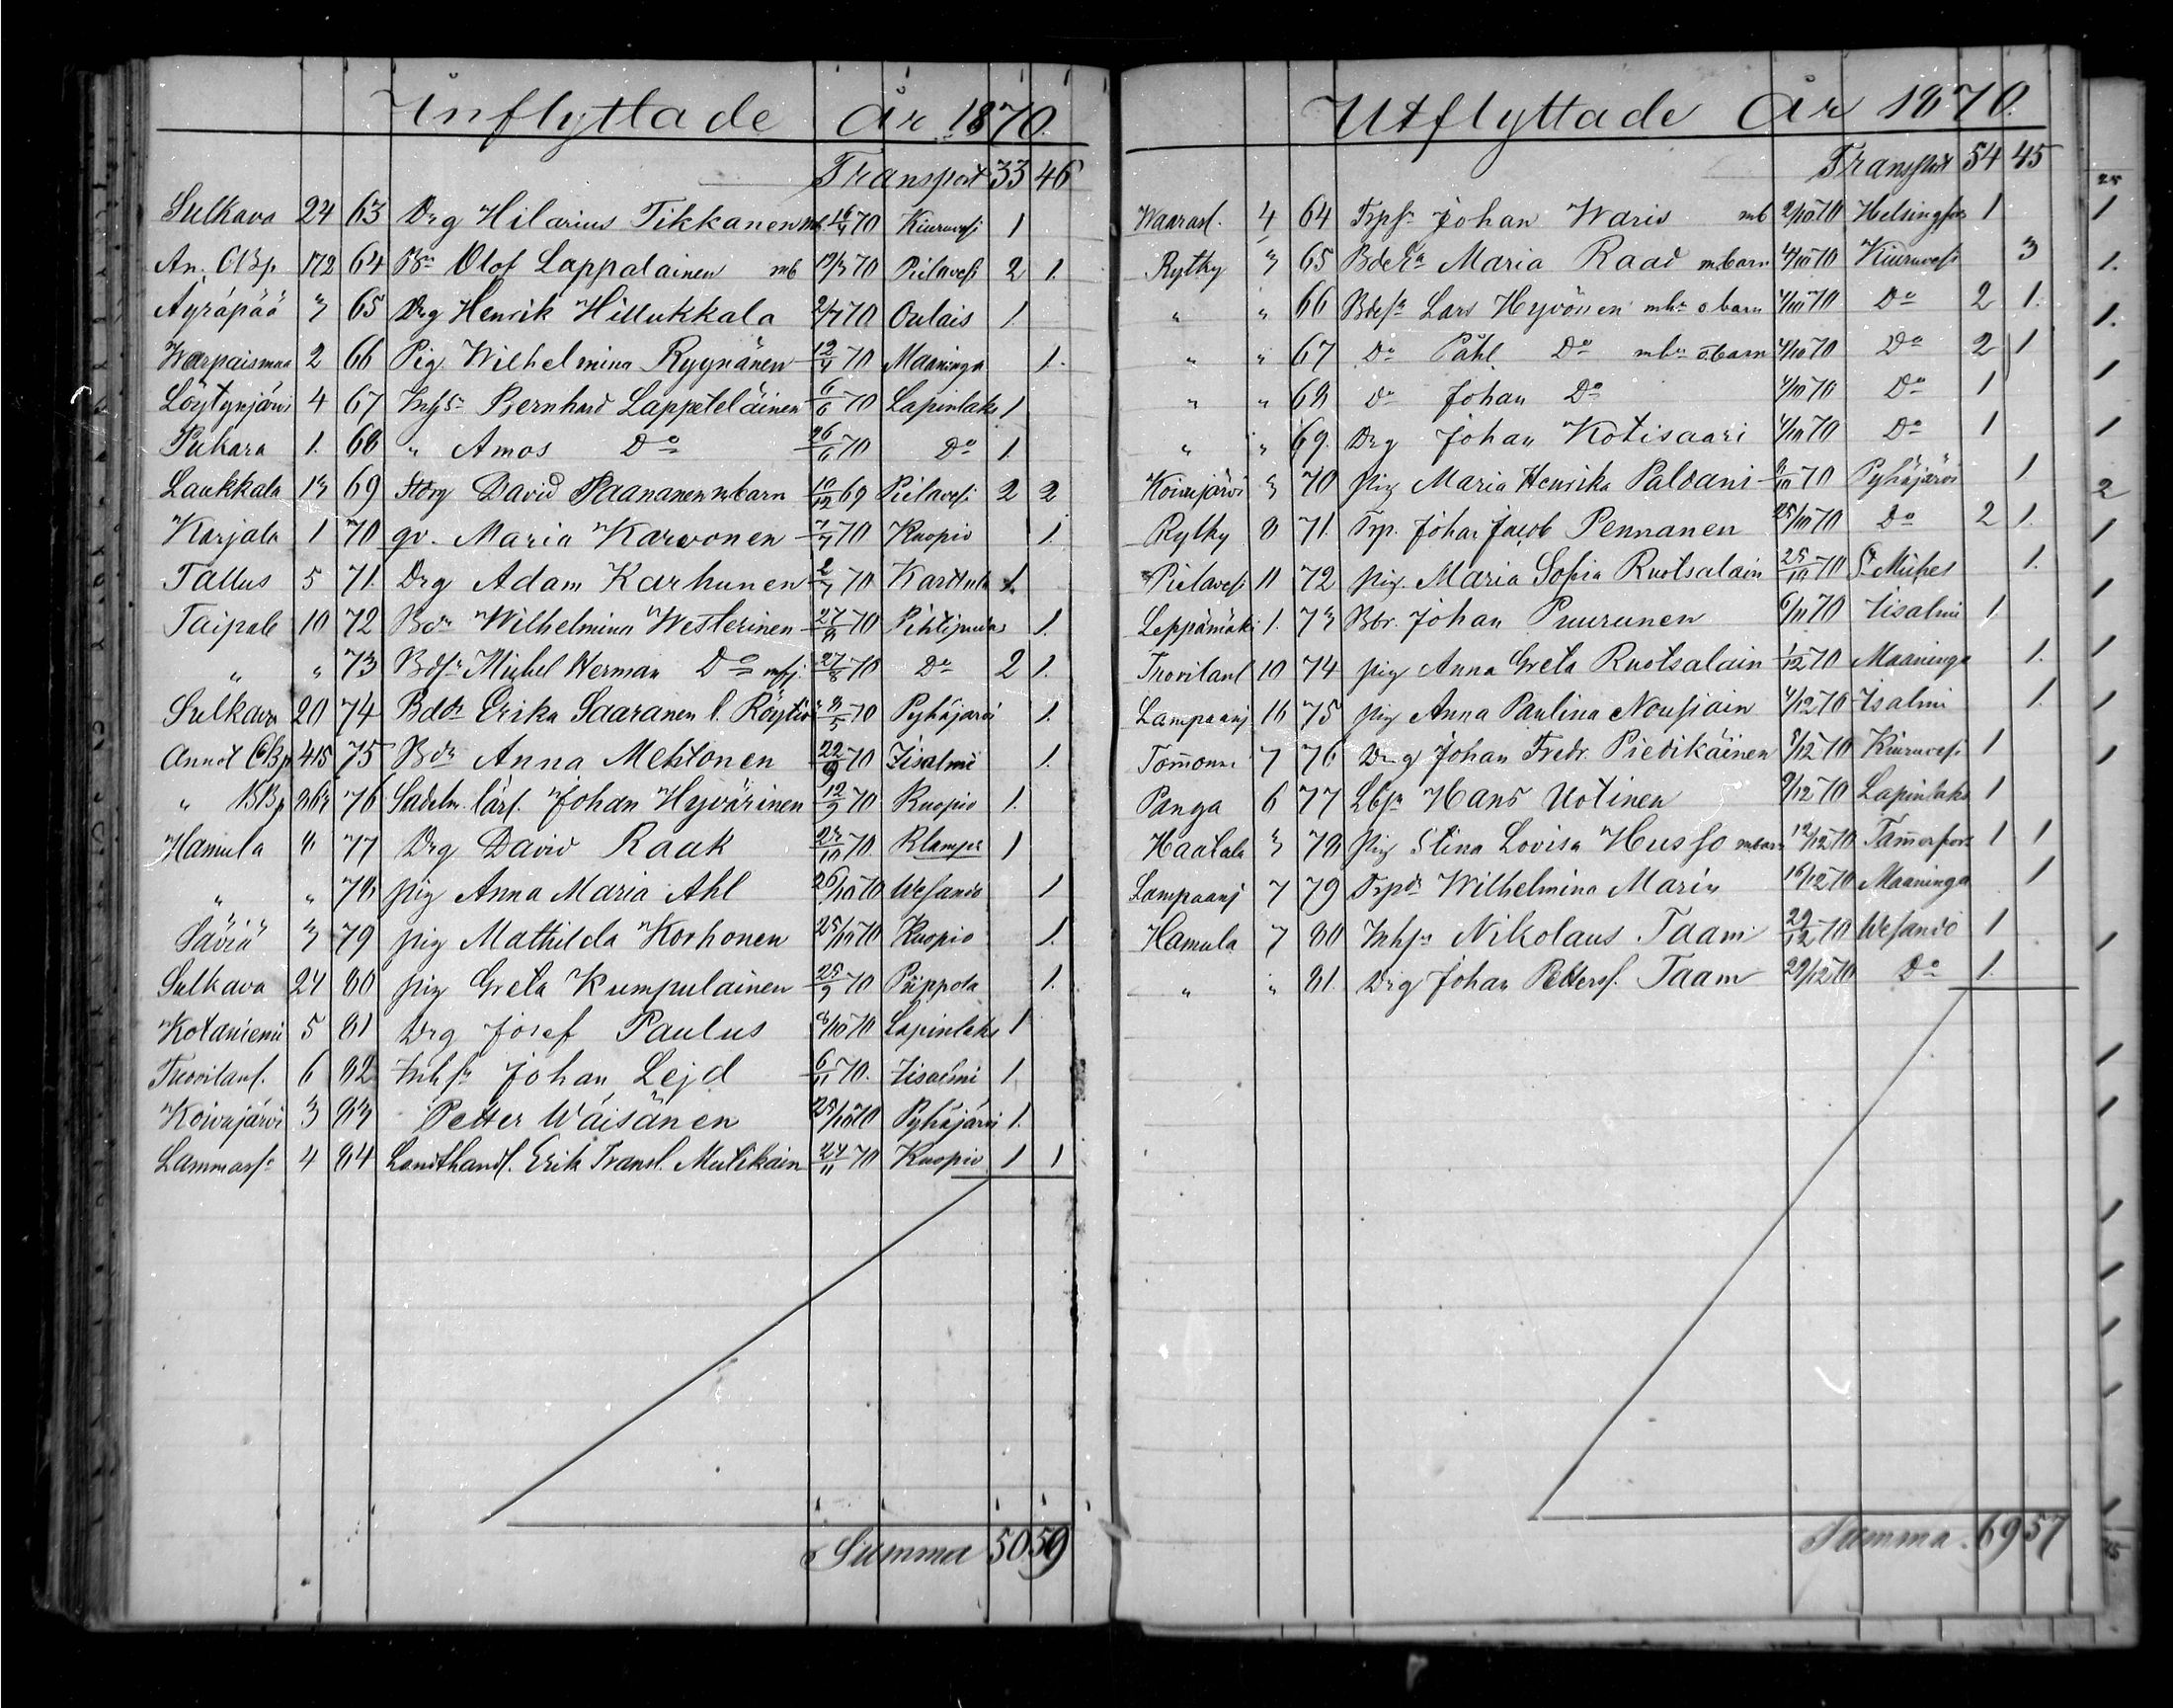 Inflyttade år 1870.
Transport 33 46
Sulkava 24 63 Drg Hilarius Tikkanen 70 Kiuruvesi 1
An. 172 64 Olof Lappalainen mb 12/3 70 Pielavesi 2 1.
Äyräpää 3 65 Drg Henrik Hillukkala 70 Oulais 1.
Warpaismaa 2 66 Pig. Wilhelmina Ryynänen 12/4 70 Maaninga 1.
Löytynjärvi 4 67 Bernhard Lappeteläinen 6/6 70 Lapinlaks 1
Pukara 1. 68 " Amos Do 26/6 70 Do 1.
Laukkala 13 69 David Paananen mbarn 10/12 69 Pielavesi 2 2
Karjala 1 70 qv. Maria Karvonen 70 Kuopio 1.
Tallus 5 71. Drg Adam Karhunen 70 Karttula 1.
Taipale 10 72 Wilhelmina Westerinen 27/8 70 Pihtipudas 1.
" " 73 Mickel Herman Do 27/8 70 Do 2 1.
Sulkava 20 74 Erika Saaranen f. 70 Pyhäjärvi 1.
Annot 415 75 Anna Mehtonen 22/9 70 Iisalmi 1.
" 76 Johan Hyvärinen 12/9 70 Kuopio 1.
Hamula 77 Drg David Raak 70. 1
" " 78 pig Anna Maria Ahl 26/10 70 Wesando 1
Säviä 3 79 pig Mathilda Korhonen 25/10 70 Kuopio 1.
Sulkava 24 80 pig Greta Kumpulainen 25/9 70 Piippola 1.
Kotaniemi 5 81 Drg Josef Paulus 8/10 70 Lapinlaks 1
6 82 Inhs Johan Lejd 6/11 70. Iisalmi 1.
Koivujärvi 3 83 Petter Wäisänen 25/10 70 Pyhäjärvi 1.
4 84 Erik 24/11 70 Kuopio 1 1
Summa 50 59
Utflyttade år 1870.
Transport 54 45
4 64 Johan Waris mb 2/10 70 Helsingfors 1
Rytky 3 65 Maria Raad mbarn 4/10 70 Kiuruvesi 3
" " 66 Lars Hyvönen 4/10 70 Do 2 1.
" " 67 Do Påhl Do 4/10 70 Do 2 1
" " 68 do Johan Do 4/10 70 Do 1
" " 69. Drg Johan Kotisaari 4/10 70 Do 1
Koivujärvi 3 70 pig Maria Henrika Paldani 70 Pyhäjärvi 1
Rytky 8 71. Johan Jacob Pennanen 25/10 70 Do 2 1.
Pielavesi 11 72 pig. Maria Sofia Ruotsalain 25/10 70 1.
Leppämäki 1. 73 Johan Puurunen 6/11 70 Iisalmi 1.
10 74 pig Anna Greta Ruotsalain 1/12 70 Maaninga 1.
Lampaanj 16 75 pig Anna Paulina Nousiain 4/12 70 Isalmi 1.
7 76 Drg Johan Fredr. Piedikäinen 8/12 70 Kiuruvesi 1
Panga 6 77 Hans Uotinen 9/12 70 Lapinlaks 1
Haatala 3 78 pig Stina Lovisa Husso mbarn 12/12 70 Tammerfors 1 1
Lampaanj 7 79 Wilhelmina Marin 16/12 70 Maaninga 1
Hamula 7 80 Inhs Nikolaus Taam 29/12 70 Wesando 1
" " 81. Drg Johan Petters. Taam 29/12 70 Do 1.
Summa. 69 57